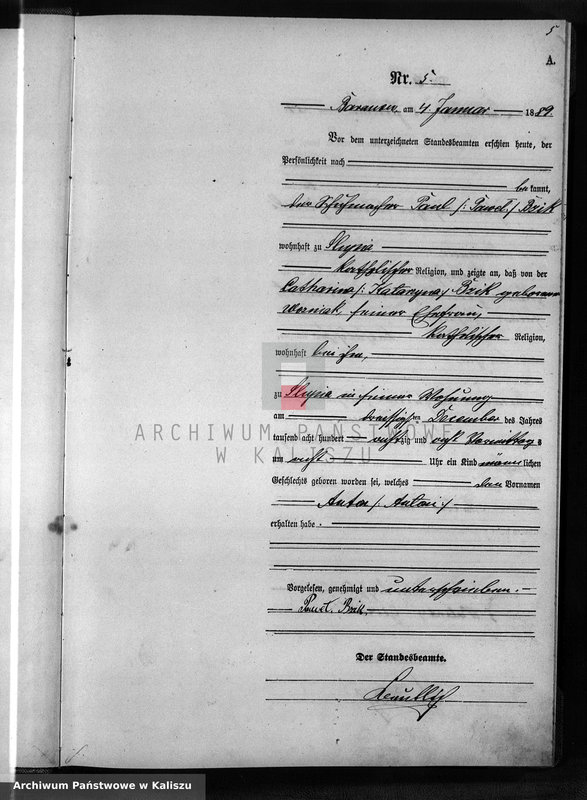 5
A.
Nr. 5.
Baranow, am 4 Januar 1889.
Vor dem unterzeichneten Standesbeamten erschien heute, der
Persönlichkeit nach
bekannt,
der Schuhmacher Paul /: Pawel :/ Bzik
wohnhaft zu Slupia
katholischer Religion, und zeigte an, daß von der
Catharina /: Katarzyna :/ Bzik geborenen
Wozniak seiner Ehefrau,
katholischer Religion,
wohnhaft bei ihm,
zu Slupia in seiner Wohnung
am dreißigsten December des Jahres
tausend acht hundert achtzig und acht Vormittags
um acht Uhr ein Kind männlichen
Geschlechts geboren worden sei, welches den Vornamen
Anton /: Antoni :/
erhalten habe.
Vorgelesen, genehmigt und unterschrieben.
Pawel Bzik
Der Standesbeamte.
ARCHIWUM PAŃSTWOWE
W KALISZU
Archiwum Państwowe w Kaliszu